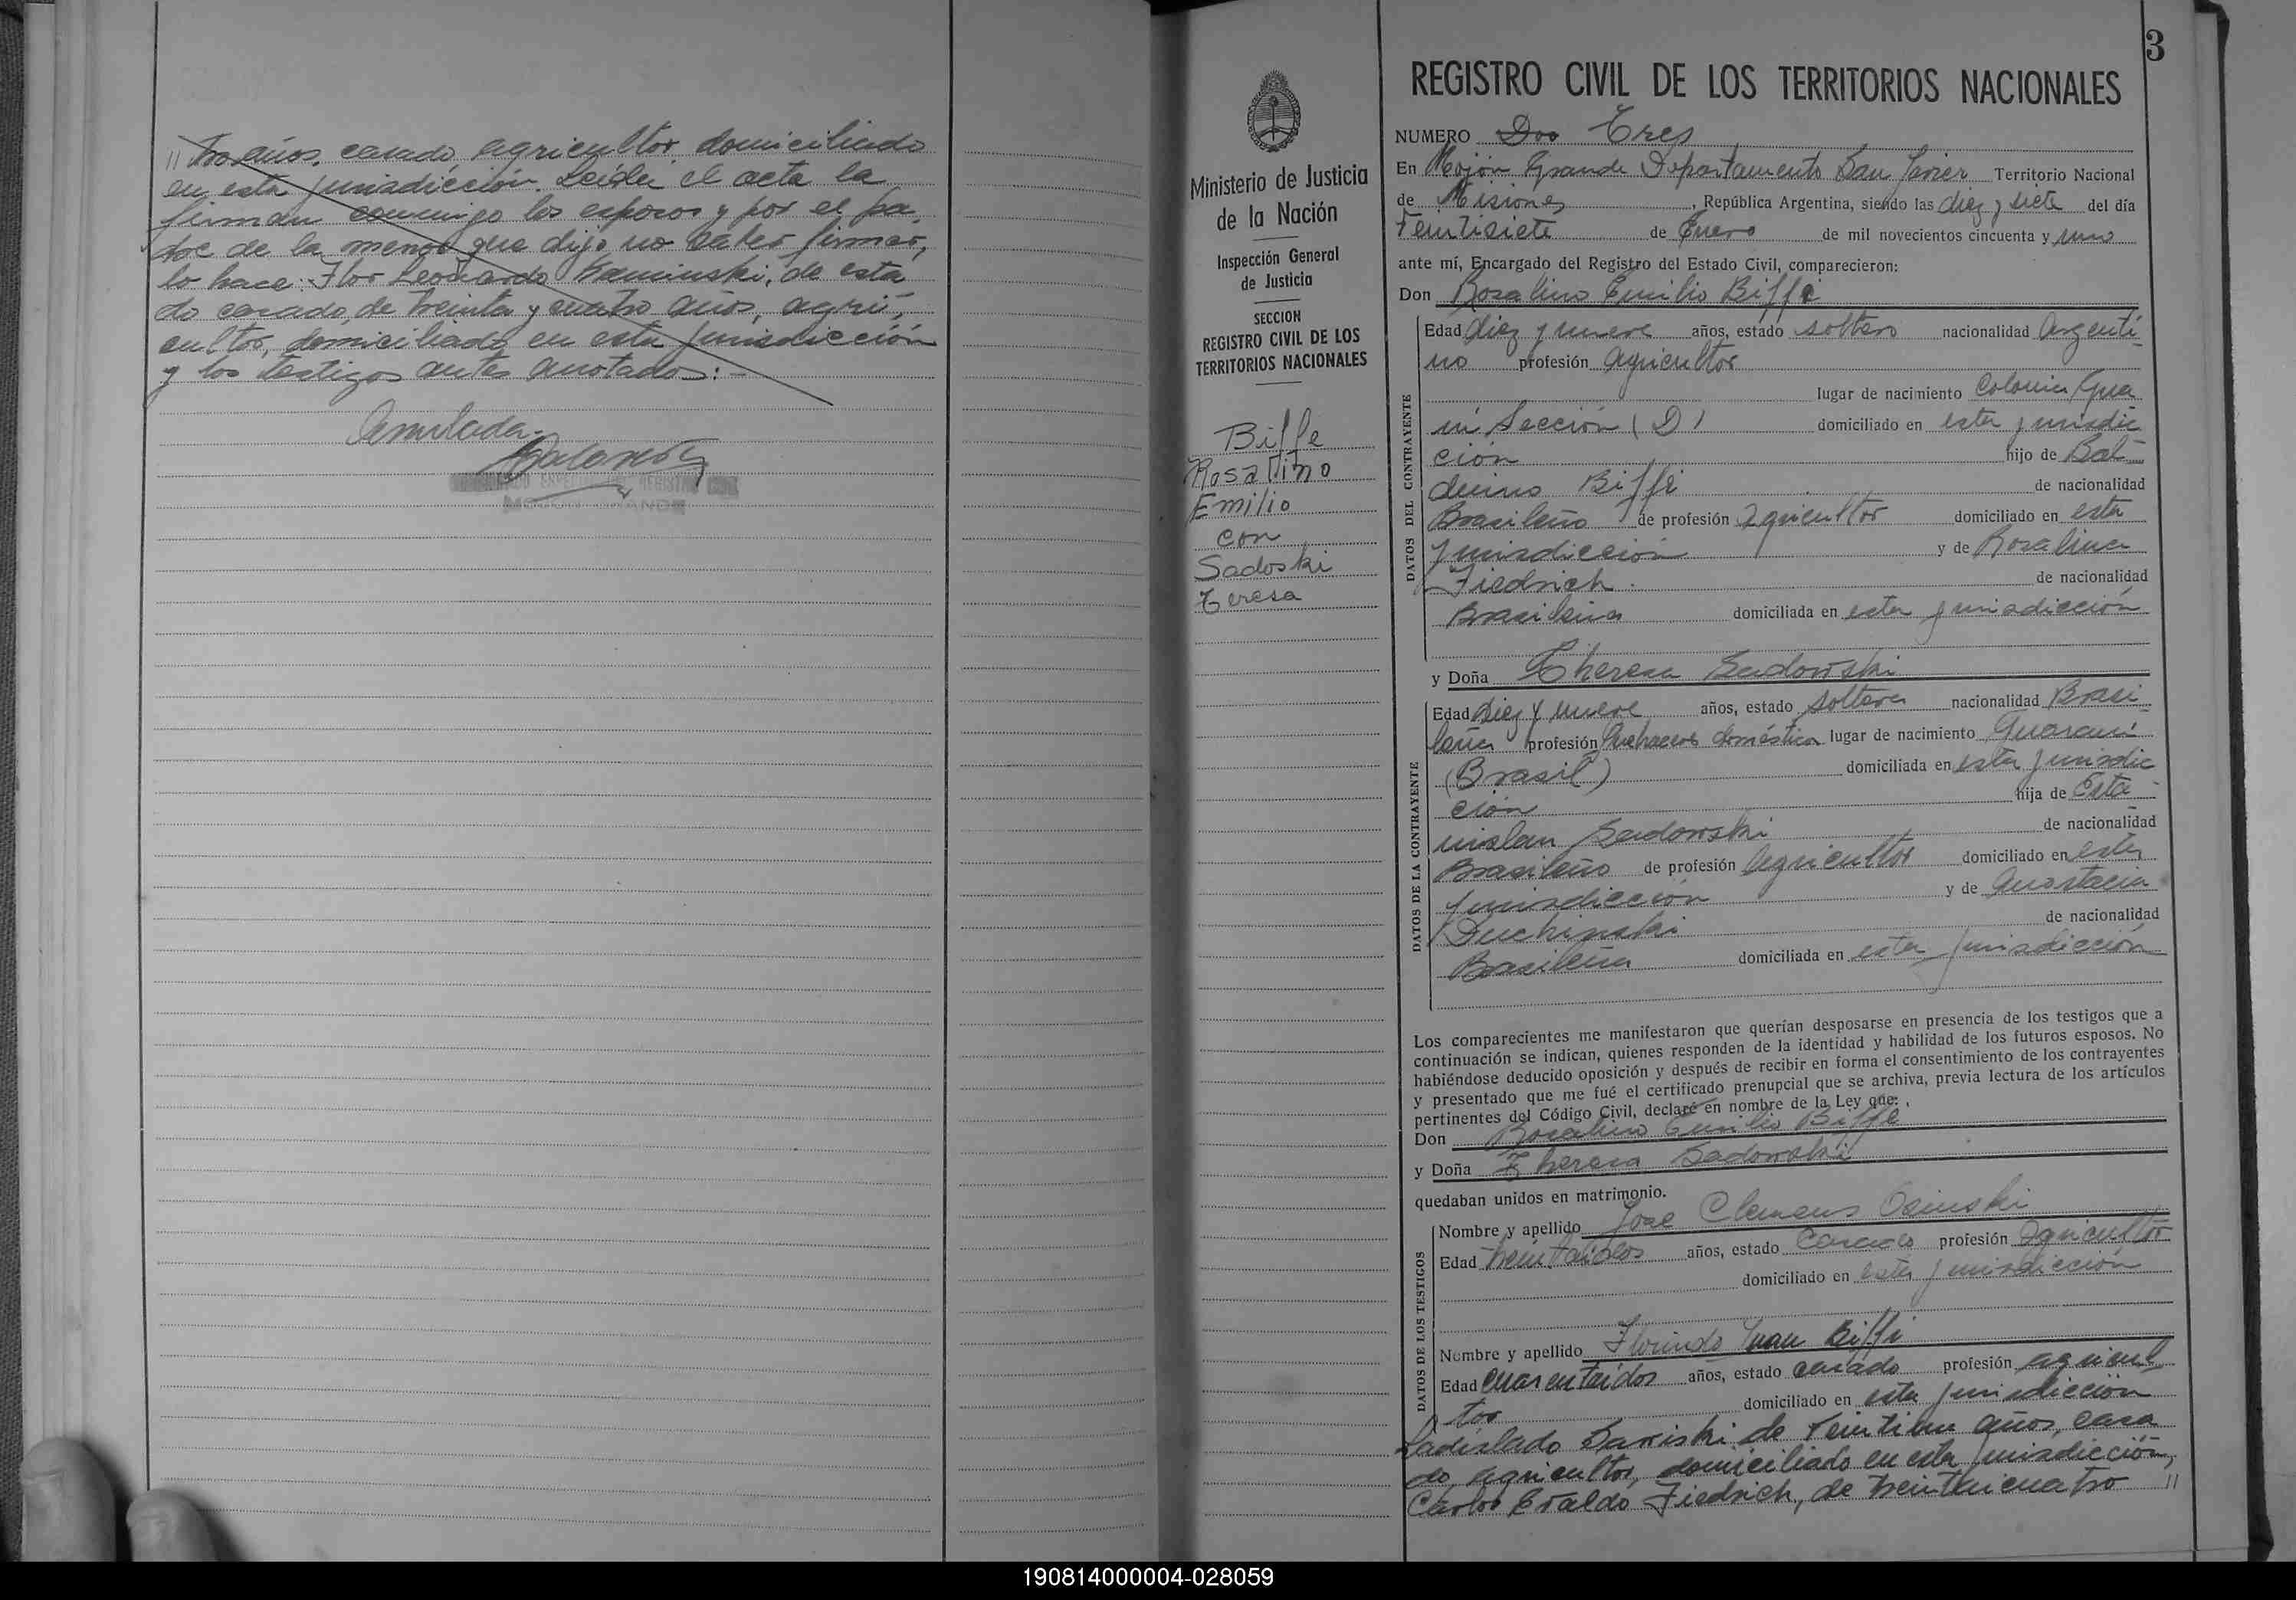 // tro años, casado, agricultor, domiciliado
en esta jurisdicción. Leída el acta la
firman conmigo los esposos y por el pa-
dre de la menor que dijo no saber firmar,
lo hace: Flor Leonardo Kaminski, de esta
do casado, de treinta y cuatro años, agri-
cultor, domiciliado en esta jurisdicción
y los testigos antes anotados:-
Anulada.-
3
Ministerio de Justicia
de la Nación
Inspección General
de Justicia
SECCION
REGISTRO CIVIL DE LOS
TERRITORIOS NACIONALES
Biffe
Rosalino
Emilio
con
Sadoski
Teresa
REGISTRO CIVIL DE LOS TERRITORIOS NACIONALES
NUMERO Dos Tres
En Mojón Grande Departamento San Javier Territorio Nacional
de Misiones, República Argentina, siendo las diez y siete del día
Veintisiete de Enero de mil novecientos cincuenta y uno
ante mí, Encargado del Registro del Estado Civil, comparecieron:
Don Rosalino Emilio Biffe
DATOS DEL CONTRAYENTE
Edad diez y nueve años, estado soltero nacionalidad Argenti
no profesión agricultor
lugar de nacimiento Colonia Gua
ní Sección (D) domiciliado en esta jurisdic
ción hijo de Bal-
duino Biffe de nacionalidad
Brasileño de profesión agricultor domiciliado en esta
jurisdicción y de Rosalina
Fiedrich. de nacionalidad
Brasileña domiciliada en esta jurisdicción
y Doña Theresa Sadowski
DATOS DE LA CONTRAYENTE
Edad diez y nueve años, estado soltera nacionalidad Brasi
leña profesión Quehaceres doméstica lugar de nacimiento Guaraní
(Brasil) domiciliada en esta jurisdic
ción hija de Esta-
nislau Sadowski de nacionalidad
Brasileño de profesión Agricultor domiciliado en esta
jurisdicción y de Anastacia
Duchinski de nacionalidad
Brasileña domiciliada en esta jurisdicción
Los comparecientes me manifestaron que querían desposarse en presencia de los testigos que a
continuación se indican, quienes responden de la identidad y habilidad de los futuros esposos. No
habiéndose deducido oposición y después de recibir en forma el consentimiento de los contrayentes
y presentado que me fué el certificado prenupcial que se archiva, previa lectura de los artículos
pertinentes del Código Civil, declaré en nombre de la Ley que:
Don Rosalino Emilio Biffe
y Doña Theresa Sadowski
quedaban unidos en matrimonio.
DATOS DE LOS TESTIGOS
Nombre y apellido Jose Clemens Osinski
Edad treintaidos años, estado Casado profesión Agricultor
domiciliado en esta jurisdicción
Nombre y apellido Florindo Juan Biffi
Edad cuarentaidos años, estado casado profesión agricul
tor domiciliado en esta jurisdicción
Ladislado Sariski de veintiun años, casa
do agricultor, domiciliado en esta jurisdicción,
Carlos Evaldo Fiedrich, de treintaicuatro //
190814000004-028059